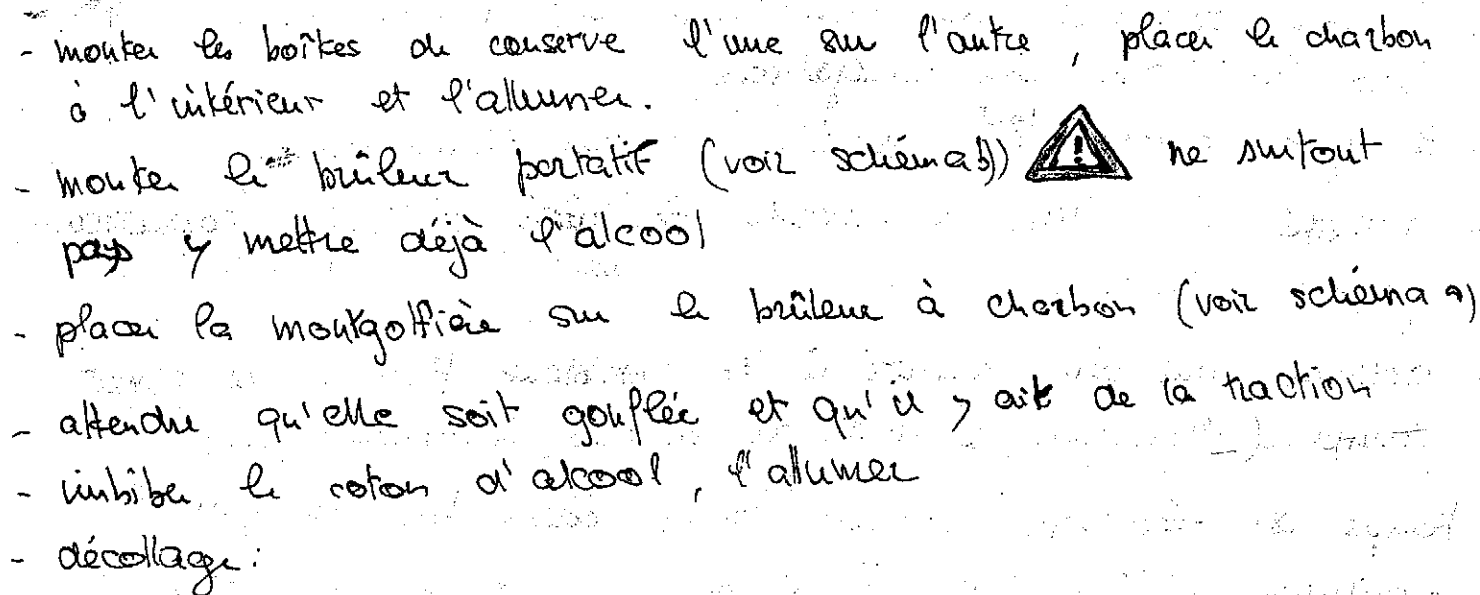 - monter les boîtes de conserve l'une sur l'autre, placer le charbon
à l'intérieur et l'allumer.
- monter le brûleur portatif (voir schéma b)) ⚠ ne surtout
pas y mettre déjà l'alcool
- placer la montgolfière sur le brûleur à charbon (voir schéma a)
- attendre qu'elle soit gonflée et qu'il y ait de la traction
- imbiber le coton d'alcool, l'allumer
- décollage: